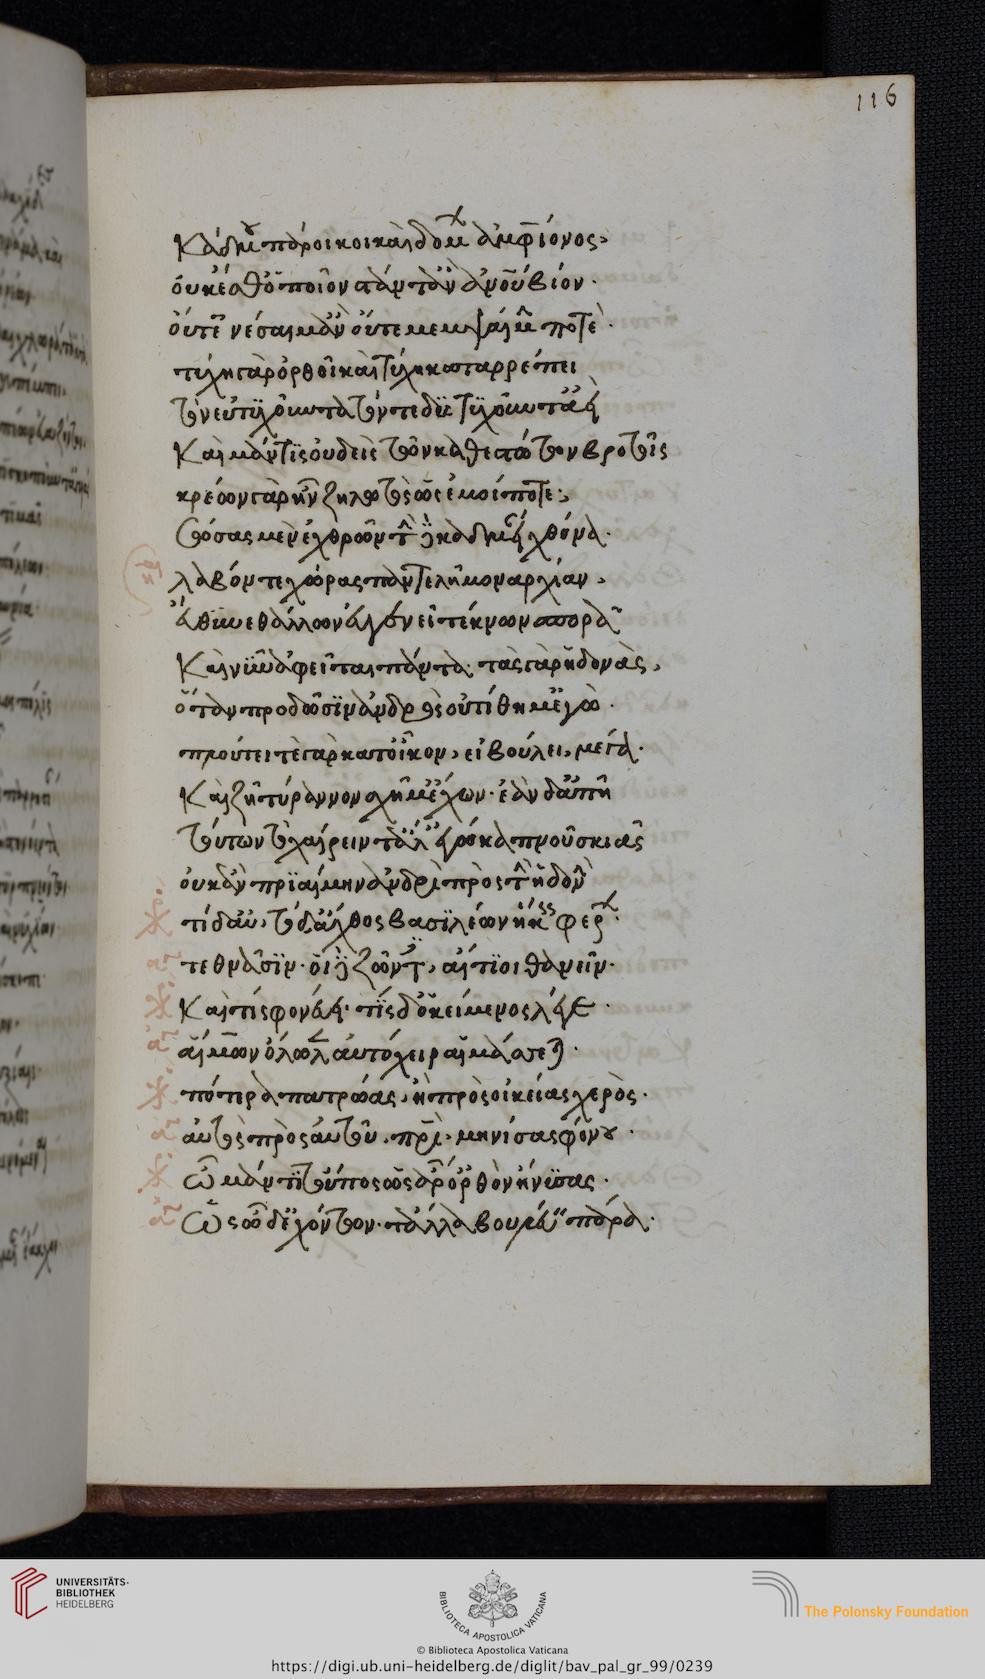 116
Κάδμου πάροικοι καὶ δόμων ἀμφίονος,
οὐκ ἔσθ᾽ ὁποῖον στάντ᾽ ἂν ἀνθρώπου βίον·
οὔτ᾽ αἰνέσαιμ᾽ ἂν οὔτε μεμψαίμην ποτέ·
τύχη γὰρ ὀρθοῖ καὶ τύχη καταρρέπει
τὸν εὐτυχοῦντα τόν τε δυστυχοῦντ᾽ ἀεί
καὶ μάντις οὐδεὶς τῶν καθεστώτων βροτοῖς
κρέων γὰρ ἦν ζηλωτὸς ὡς ἐμοί ποτε·
σώσας μὲν ἐχθρῶν τήνδε καδμείαν χθόνα·
λαβών τε χώρας παντελῆ μοναρχίαν,
εὔθυνε θάλλων εὐγενεῖ τέκνων σπορᾷ
καὶ νῦν ἀφεῖται πάντα· τὰς γὰρ ἡδονὰς,
ὅταν προδῶσιν ἀνδρὸς οὐ τίθημ᾽ ἐγὼ·
πλούτει τὲ γὰρ κατ᾽ οἶκον, εἰ βούλει, μέγα·
καὶ ζῆ τύραννον σχῆμ᾽ ἔχων· ἐὰν δ᾽ ἀπῆ
τούτων τὸ χαίρειν τἄλλ᾽ ἐγὼ καπνοῦ σκιᾶς
οὐκ ἂν πριαίμην ἀνδρὶ πρὸς τὴν ἡδονήν
τί δ᾽ αὖ, τόδ᾽ ἄχθος βασιλέων ἥκεις φέρων·
τεθνᾶσιν· οἱ δὲ ζῶντες, αἴτιοι θανεῖν·
καὶ τίς φονεύει· τίς δ᾽ ὁ κείμενος λέγε·
αἵμων ὄλωλεν αὐτόχειρ αἱμάσσεται·
πότερα πατρώας, ἢ πρὸς οἰκείας χερὸς·
αὐτὸς πρὸς αὑτοῦ, πατρὶ μηνίσας φόνου·
ὦ μάντι τοὔπος ὡς ἄρ᾽ ὀρθὸν ἤνυσας·
ὡς ὧδ᾽ ἐχόντων· τἄλλα βουλεύειν πάρα·
UNIVERSITÄTS-
BIBLIOTHEK
HEIDELBERG
BIBLIOTECA APOSTOLICA VATICANA
The Polonsky Foundation
© Biblioteca Apostolica Vaticana
https://digi.ub.uni-heidelberg.de/diglit/bav_pal_gr_99/0239